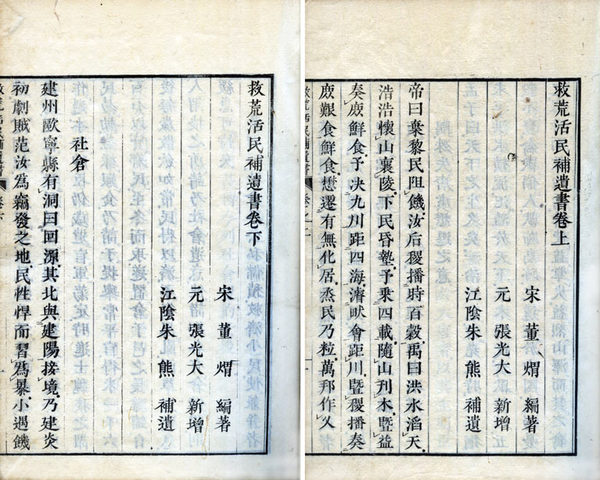 救荒活民補遺書卷上
宋 董 煟 編著
元 張光大 新增
江陰朱 熊 補遺
帝曰棄黎民阻饑汝后稷播時百穀禹曰洪水滔天
浩浩懷山襄陵下民昏墊予乘四載隨山刊木暨益
奏庶鮮食予决九川距四海濬畎會距川暨稷播奏
庶艱食鮮食懋遷有無化居烝民乃粒萬邦作乂
救荒活民補遺書卷下
宋 董 煟 編著
元 張光大 新增
江陰朱 熊 補遺
社倉
建州歐寧縣有洞曰回源其北與建陽接境乃建炎
初劇賊范汝爲竊發之地民性悍而習爲暴小遇饑